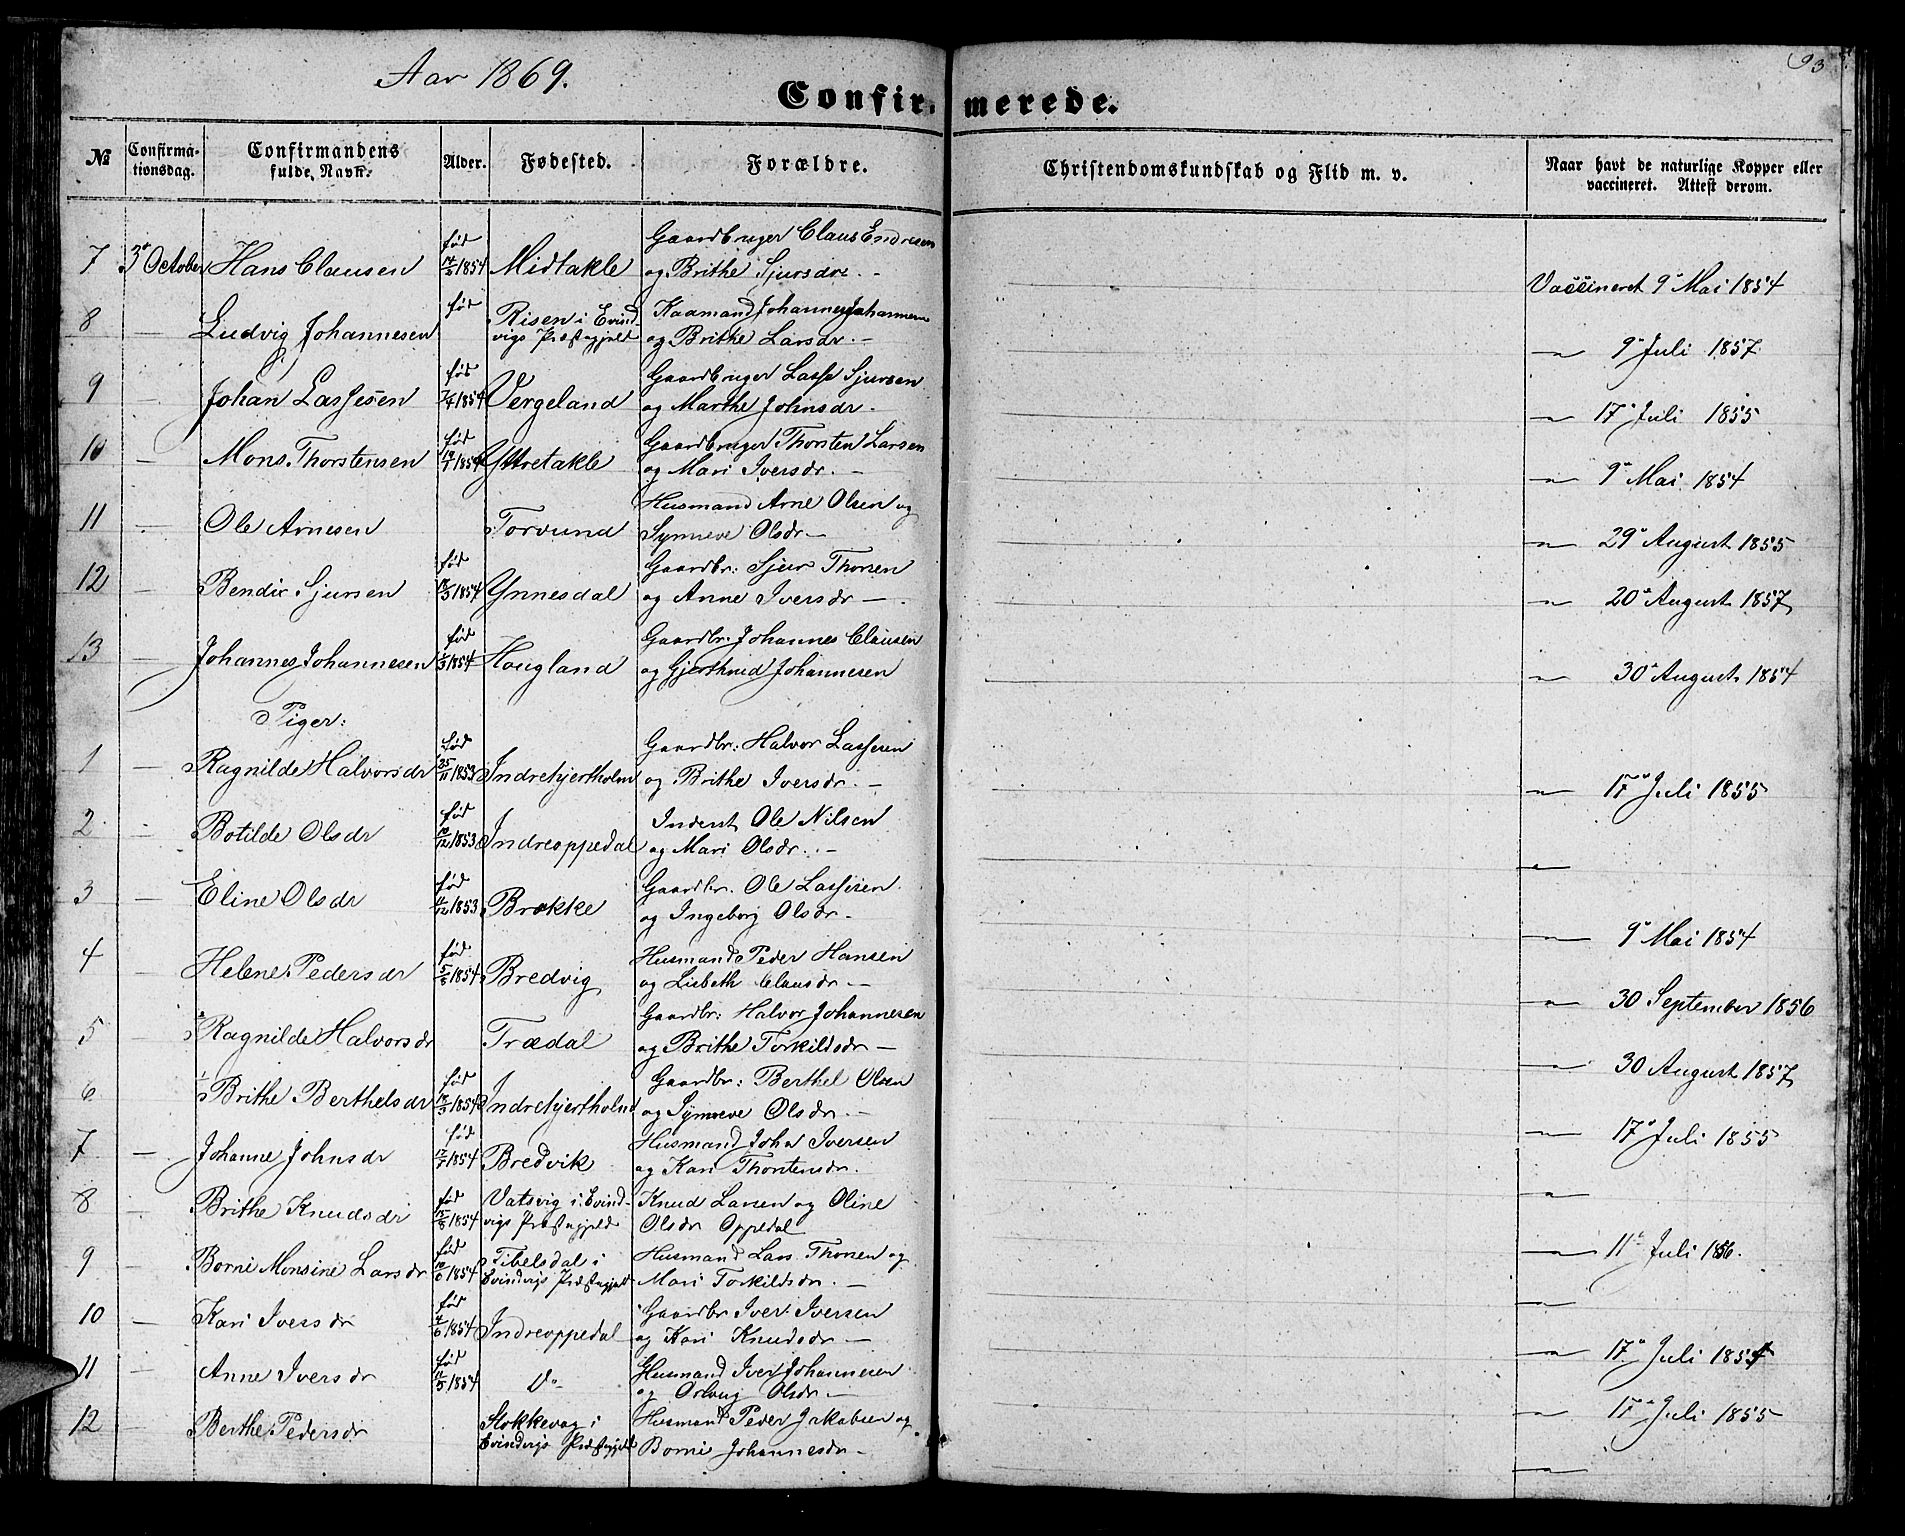 Aar 1869.
93
Confirmerede.
№ Confirmationsdag. Confirmandens fulde Navn. Alder. Fødested. Forældre. Christendomskundskab og Flid m. v. Naar havt de naturlige Kopper eller vaccineret. Attest derom.
født Gaardbruger Claus Endresen
7 3die October Hans Clausen 1854 Midtakle og Brithe Sjursdr. - Vaccineret 9de Mai 1854
født Risen i Evind- Kaamand Johannes Johannesen
8 — Ludvig Johannesen vigs Præstegjeld og Brithe Larsdr. — — 9de Juli 1857
født Gaardbruger Lasse Sjursen
9 — Johan Lassesen 1854 Vergeland og Marthe Johnsdr. — 17de Juli 1855
født Gaardbruger Thorsten Larsen
10 — Mons Thorstensen 1854 Yttretakle og Mari Iversdr. — — 9de Mai 1854
Husmand Arne Olsen og
11 — Ole Arnesen Torvund Synneve Olsdr — — 29de August 1855
født Gaardbr: Sjur Thorsen
12 — Bendix Sjursen 18/3 1854 Ynnesdal og Anne Iversdr — — 20de August 1857
født Gaardbr: Johannes Clausen
13 — Johannes Johannesen 1854 Hougland og Gjerthrud Johannesen — 30de August 1854
Piger:
født Gaardbr: Halvor Lassesen
1 — Ragnilde Halvorsdr 25/11 1853 Indrehjertholm og Brithe Iversdr. — — 17de Juli 1855
født Inderst Ole Nilsen
2 — Botilde Olsdr 10/12 1853 Indreoppedal og Mari Olsdr. — —
født Gaardbr. Ole Lassesen
3 — Eline Olsdr 11/12 1853 Brekke og Ingeborg Olsdr — — 9de Mai 1854
født Husmand Peder Hansen
4 — Helene Pedersdr 1854 Bredvig og Lisbeth Clausdr — — 30 September 1856
Gaardbr: Halvor Johannesen
5 — Ragnilde Halvorsdr Trædal og Brithe Torkildsdr — — 30 August 1857
født Gaardbr: Berthel Olsen
6 — Brithe Berthelsdr 1854 Indrehjertholm og Synneve Olsdr. — — 17de Juli 1855
født Husmand John Iversen
7 — Johanne Johnsdr 1854 Bredvik og Kari Thorstensdr. —
født Vatsvig i Evind- Knud Larsen og Oline
8 — Brithe Knudsdr 1854 vigs Præstegjeld Olsdr Oppedal — 11te Juli 1856.
født Tibelsdal i Husmand Lars Thorsen og
9 — Borni Monsine Larsdr 1854 Evindvigs Præstegjeld Mari Torkildsdr. — —
født Gaardbr Iver Iversen
10 — Kari Iversdr 1854 Indreoppedal og Kari Knudsdr — — 17de Juli 1854
født Husmand Iver Johannesen
11 — Anne Iversdr 1854 Do og Olsdr — — 17de Juli 1855
Stokkevag i Husmand Peder Jakobsen og
12 Berthe Pedersdr Evindvigs Præstegjeld Borni Johannesdr — —